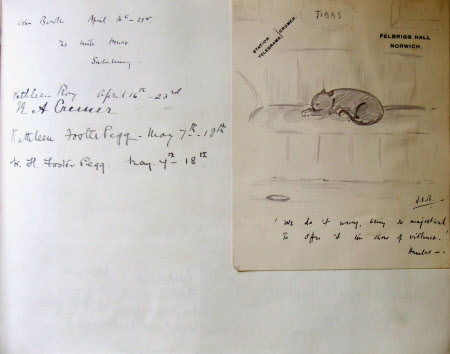 John                April 16th - 21st
The Mill House
Salisbury
Kathleen Roy April 16th - 23rd
A Cremer
Kathleen Foster Pegg - May 7th - 18th
W. H. Foster Pegg. May. 7th - 18th.
TIBBS
STATION TELEGRAMS } CROMER.
FELBRIGG HALL
NORWICH.
'We do it wrong, being so majestical
To offer it the show of violence.'
Hamlet -